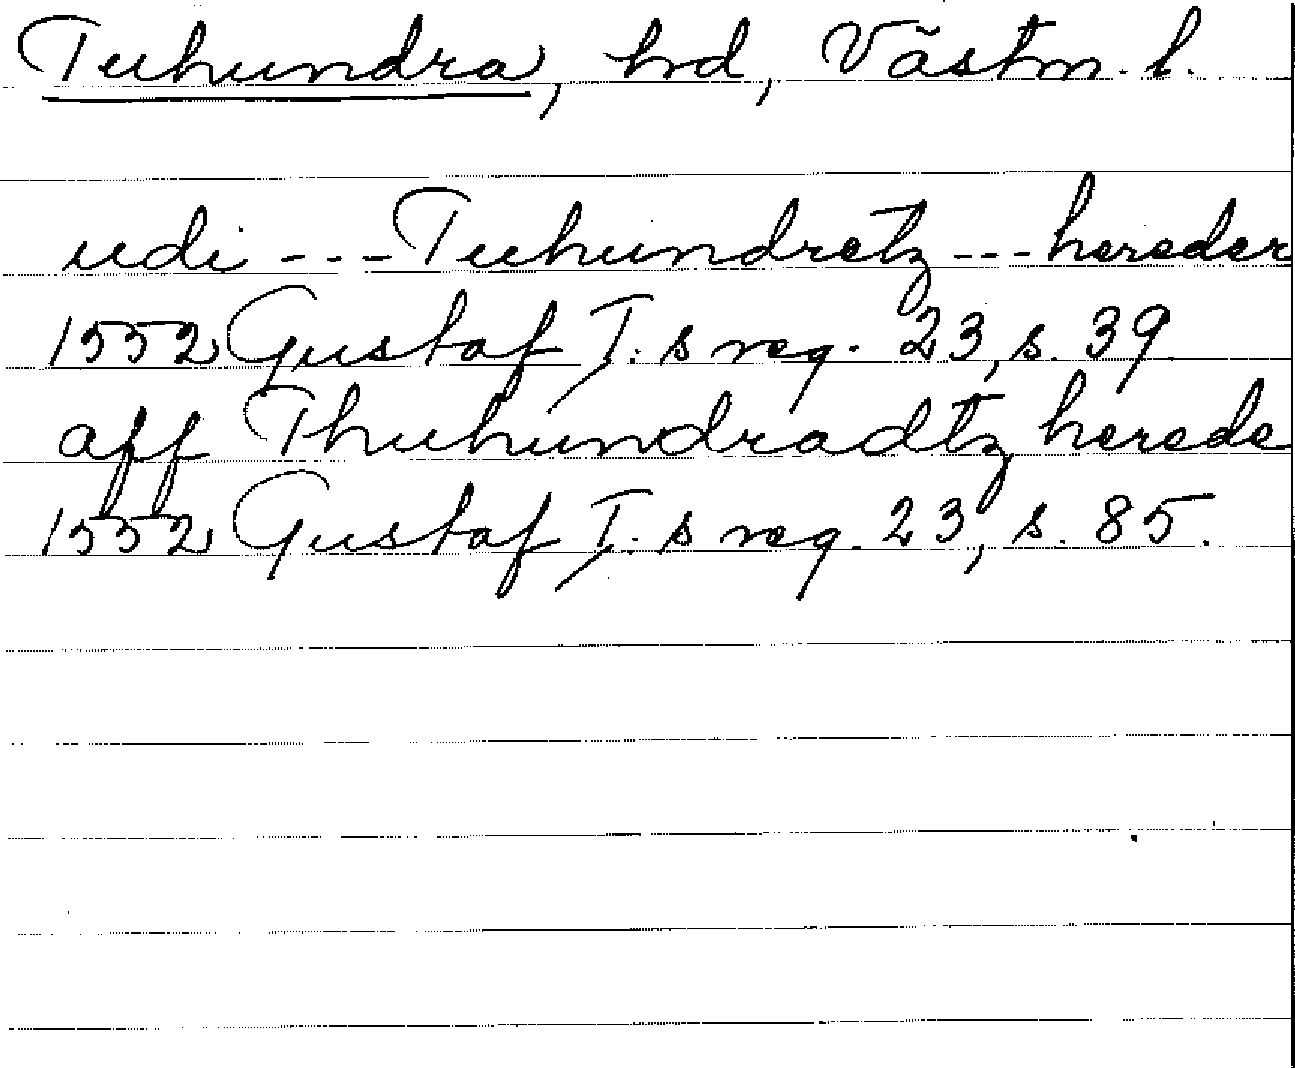 Tuhundra, hd, Västm. l.
udi --- Tuhundretz --- hereder
1552 Gustaf I.s reg. 23, s. 39
aff Thuhundradtz herede
1552 Gustaf I.s reg. 23, s. 85.